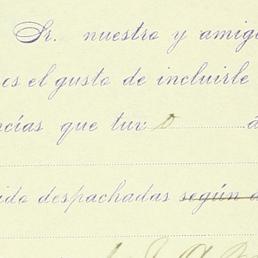 Sr. nuestro y amig
es el gusto de incluirle
ncías que tuv o
ido despachadas según